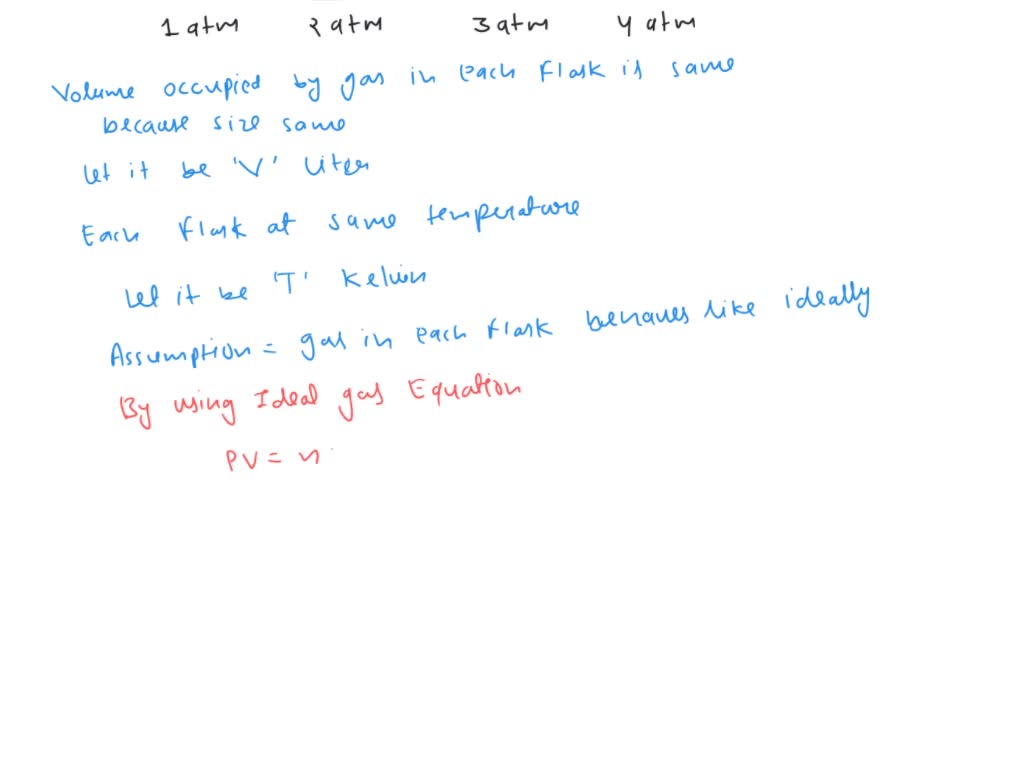 1 atm 2 atm 3 atm 4 atm
Volume occupied by gas in each flask is same
because size same
Let it be 'V' liter
Each flask at same temperature
Let it be 'T' Kelvin
Assumption = gas in each flask behaves like ideally
By using Ideal gas Equation
PV = n